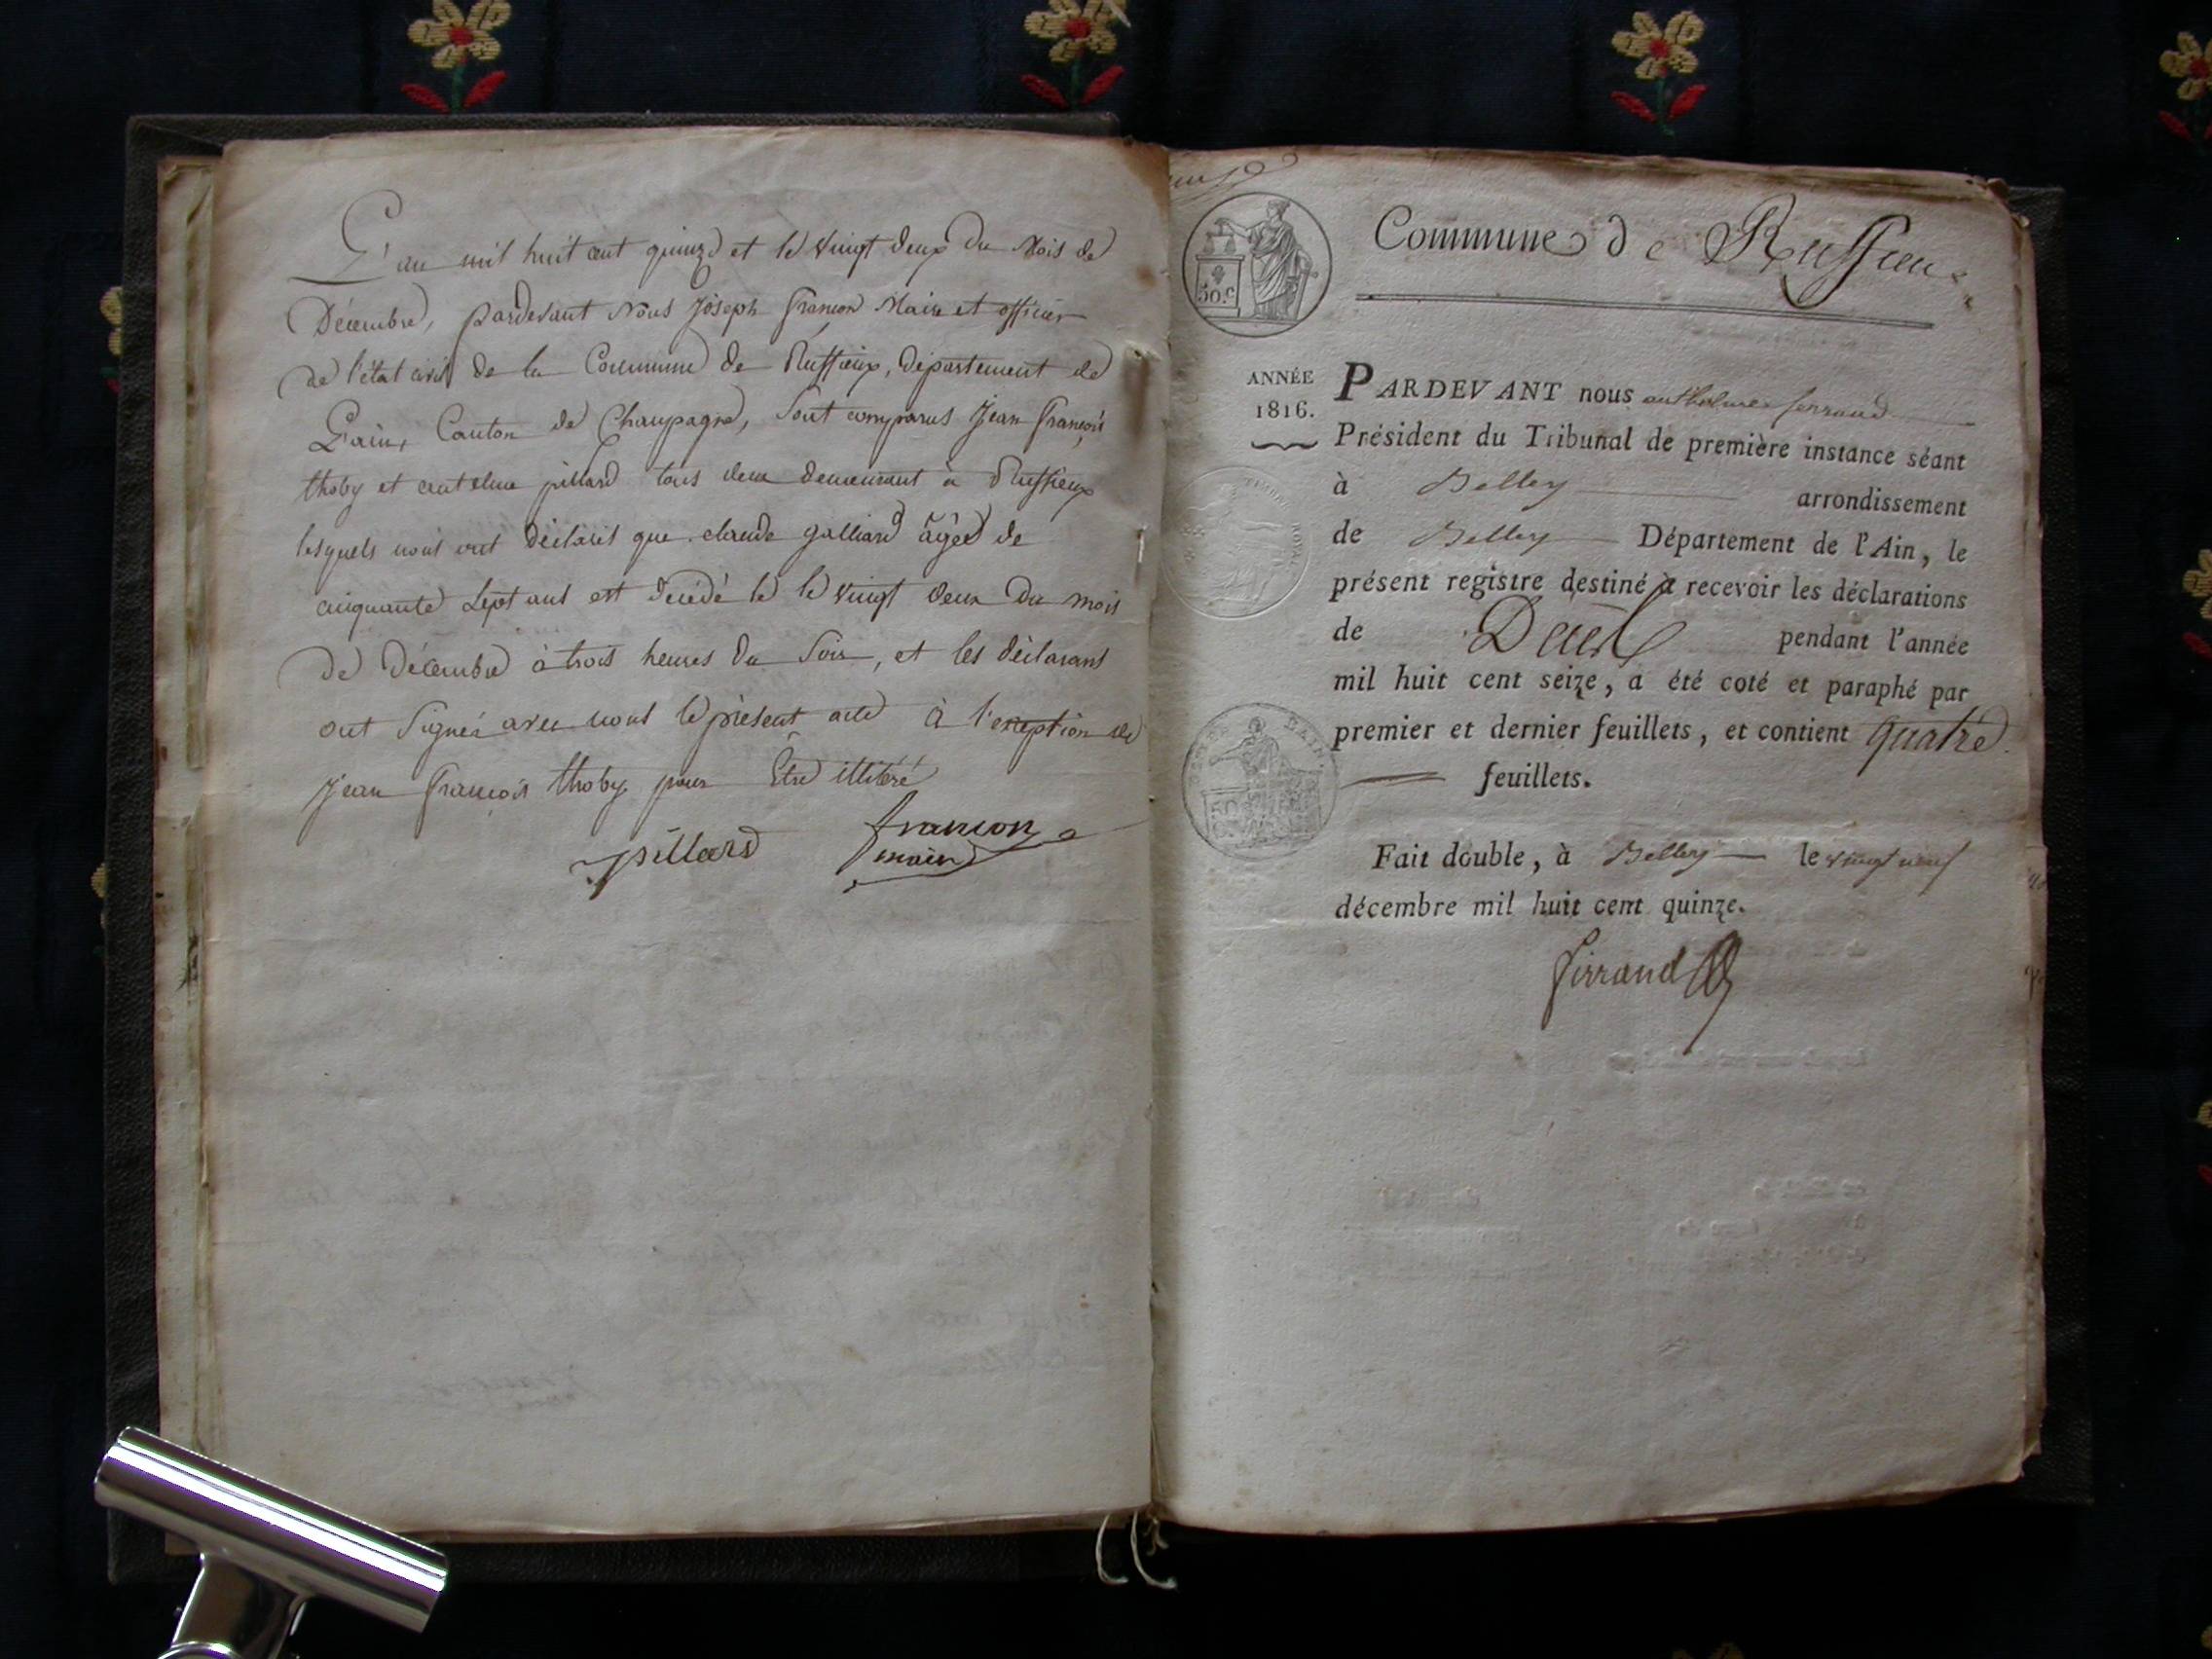 L'an mil huit cent quinze et le vingt deux du Mois de
Décembre, pardevant Nous Joseph françon Maire et officier
de l'état civil de la Commune de Ruffieux, département de
L'ain, Canton de Champagne, sont comparus Jean françois
thoby et antelme pillard tous deux demeurant à Ruffieux
lesquels nous ont déclaré que claude galliard âgé de
cinquante sept ans est décédé le le vingt deux du mois
de décembre à trois heures du soir, et les déclarans
ont signés avec nous le présent acte à l'exeption de
Jean françois thoby pour Etre illitéré
pillard françon
maire
50.c
Commune de Ruffieux
ANNÉE
1816.
PARDEVANT nous anthelme ferrand
Président du Tribunal de première instance séant
à Belley arrondissement
de Belley Département de l'Ain, le
présent registre destiné à recevoir les déclarations
de Décès pendant l'année
mil huit cent seize, a été coté et paraphé par
premier et dernier feuillets, et contient quatre
feuillets.
TIMBRE ROYAL
Fait double, à Belley le vingt neuf
décembre mil huit cent quinze.
ferrand